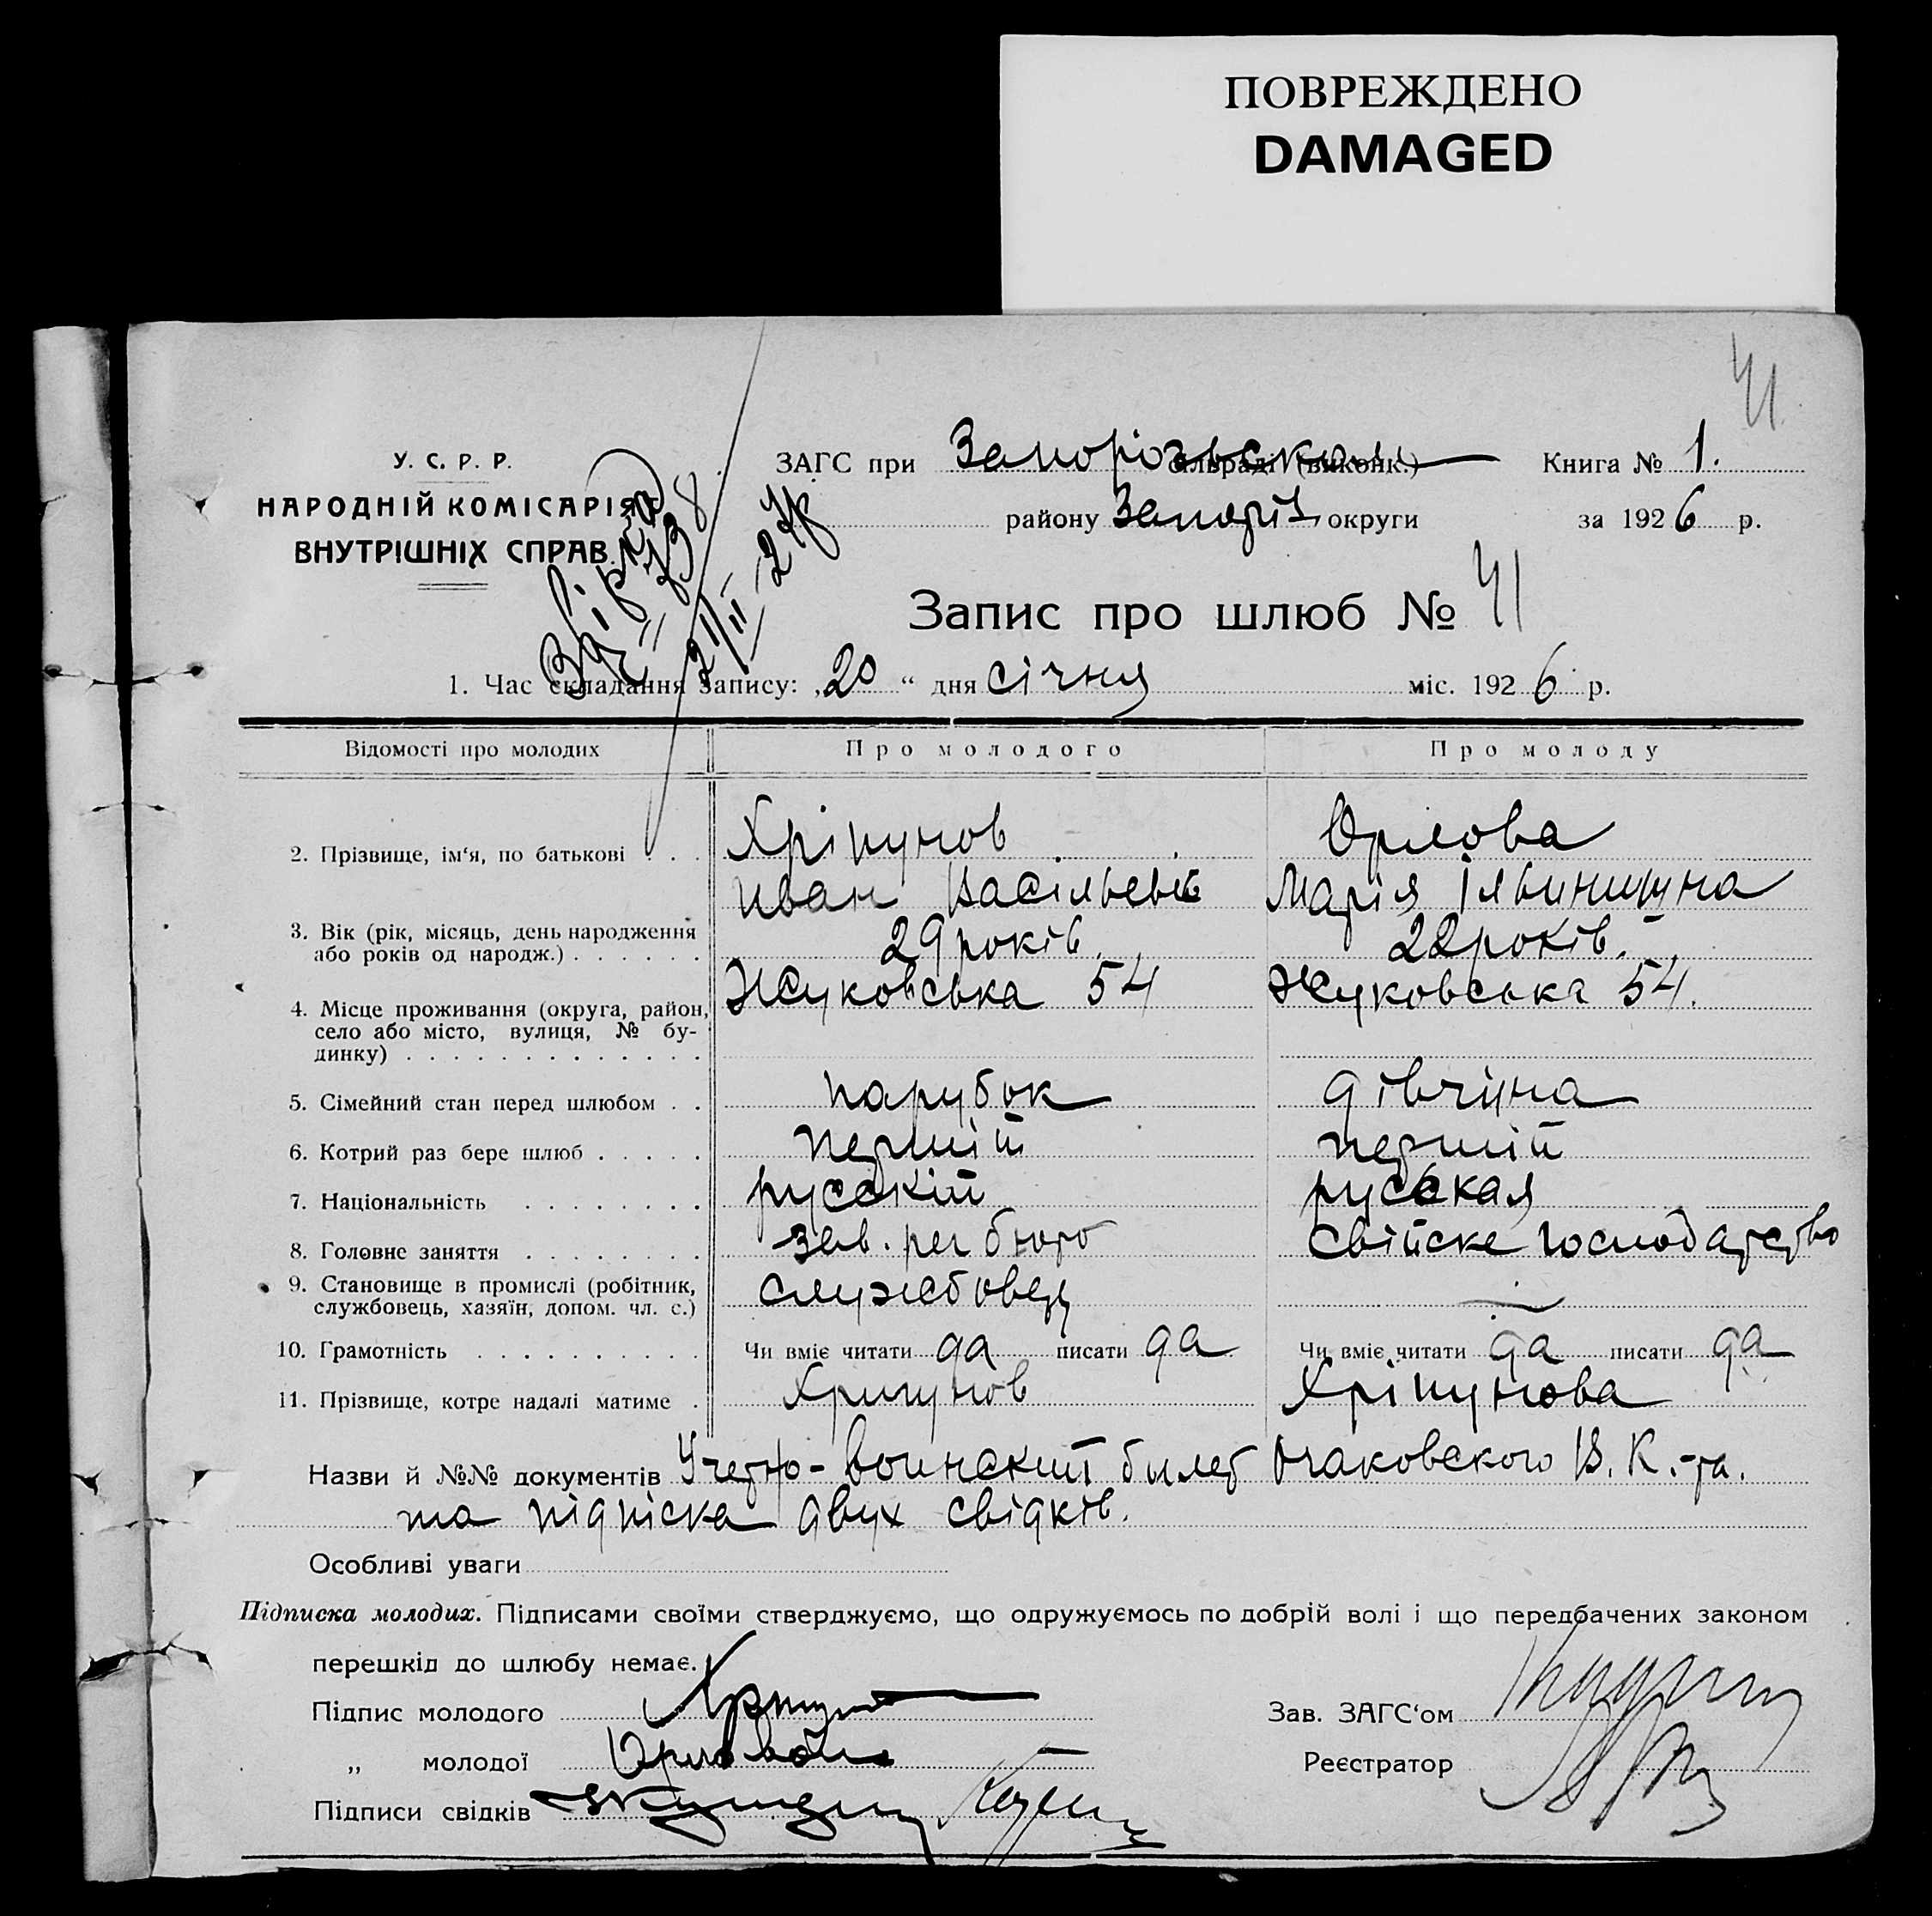 ПОВРЕЖДЕНО
DAMAGED
41
У. С. Р. Р.
НАРОДНІЙ КОМІСАРІЯТ
ВНУТРІШНІХ СПРАВ.
ЗАГС при сільраді (виконк.)
Книга № 1.
району Запоріз. округи
за 1926 р.
Запис про шлюб № 41
1. Час складання запису: „20“ дня січня міс. 1926 р.
Відомості про молодих Про молодого Про молоду
2. Прізвище, ім‘я, по батькові . . . Хріпунов Орлова
Иван Васільевіч Марія Ільинишна
3. Вік (рік, місяць, день народження або років од народж.) . . . . . . 29 років. 22 років.
4. Місце проживання (округа, район, село або місто, вулиця, № будинку) . . . . . . . . . . . . . Жуковська 54 Жуковська 54.
5. Сімейний стан перед шлюбом . . парубок дівчина
6. Котрий раз бере шлюб . . . . . перший перший
7. Національність . . . . . . . . русскій русская
8. Головне заняття . . . . . . . . Зав. рег бюро свійске господарство
9. Становище в промислі (робітник, службовець, хазяїн, допом. чл. с.) службовец —
10. Грамотність . . . . . . . . . . Чи вміє читати да писати да Чи вміє читати да писати да
11. Прізвище, котре надалі матиме . Хрипунов Хріпунова
Назви й №№ документів Учетно-воинский билет Очаковского В. К.-та.
та підписка двух свідків.
Особливі уваги
Підписка молодих. Підписами своїми стверджуємо, що одружуємось по добрій волі і що передбачених законом
перешкід до шлюбу немає.
Підпис молодого
Зав. ЗАГС‘ом
„ молодої
Реєстратор
Підписи свідків